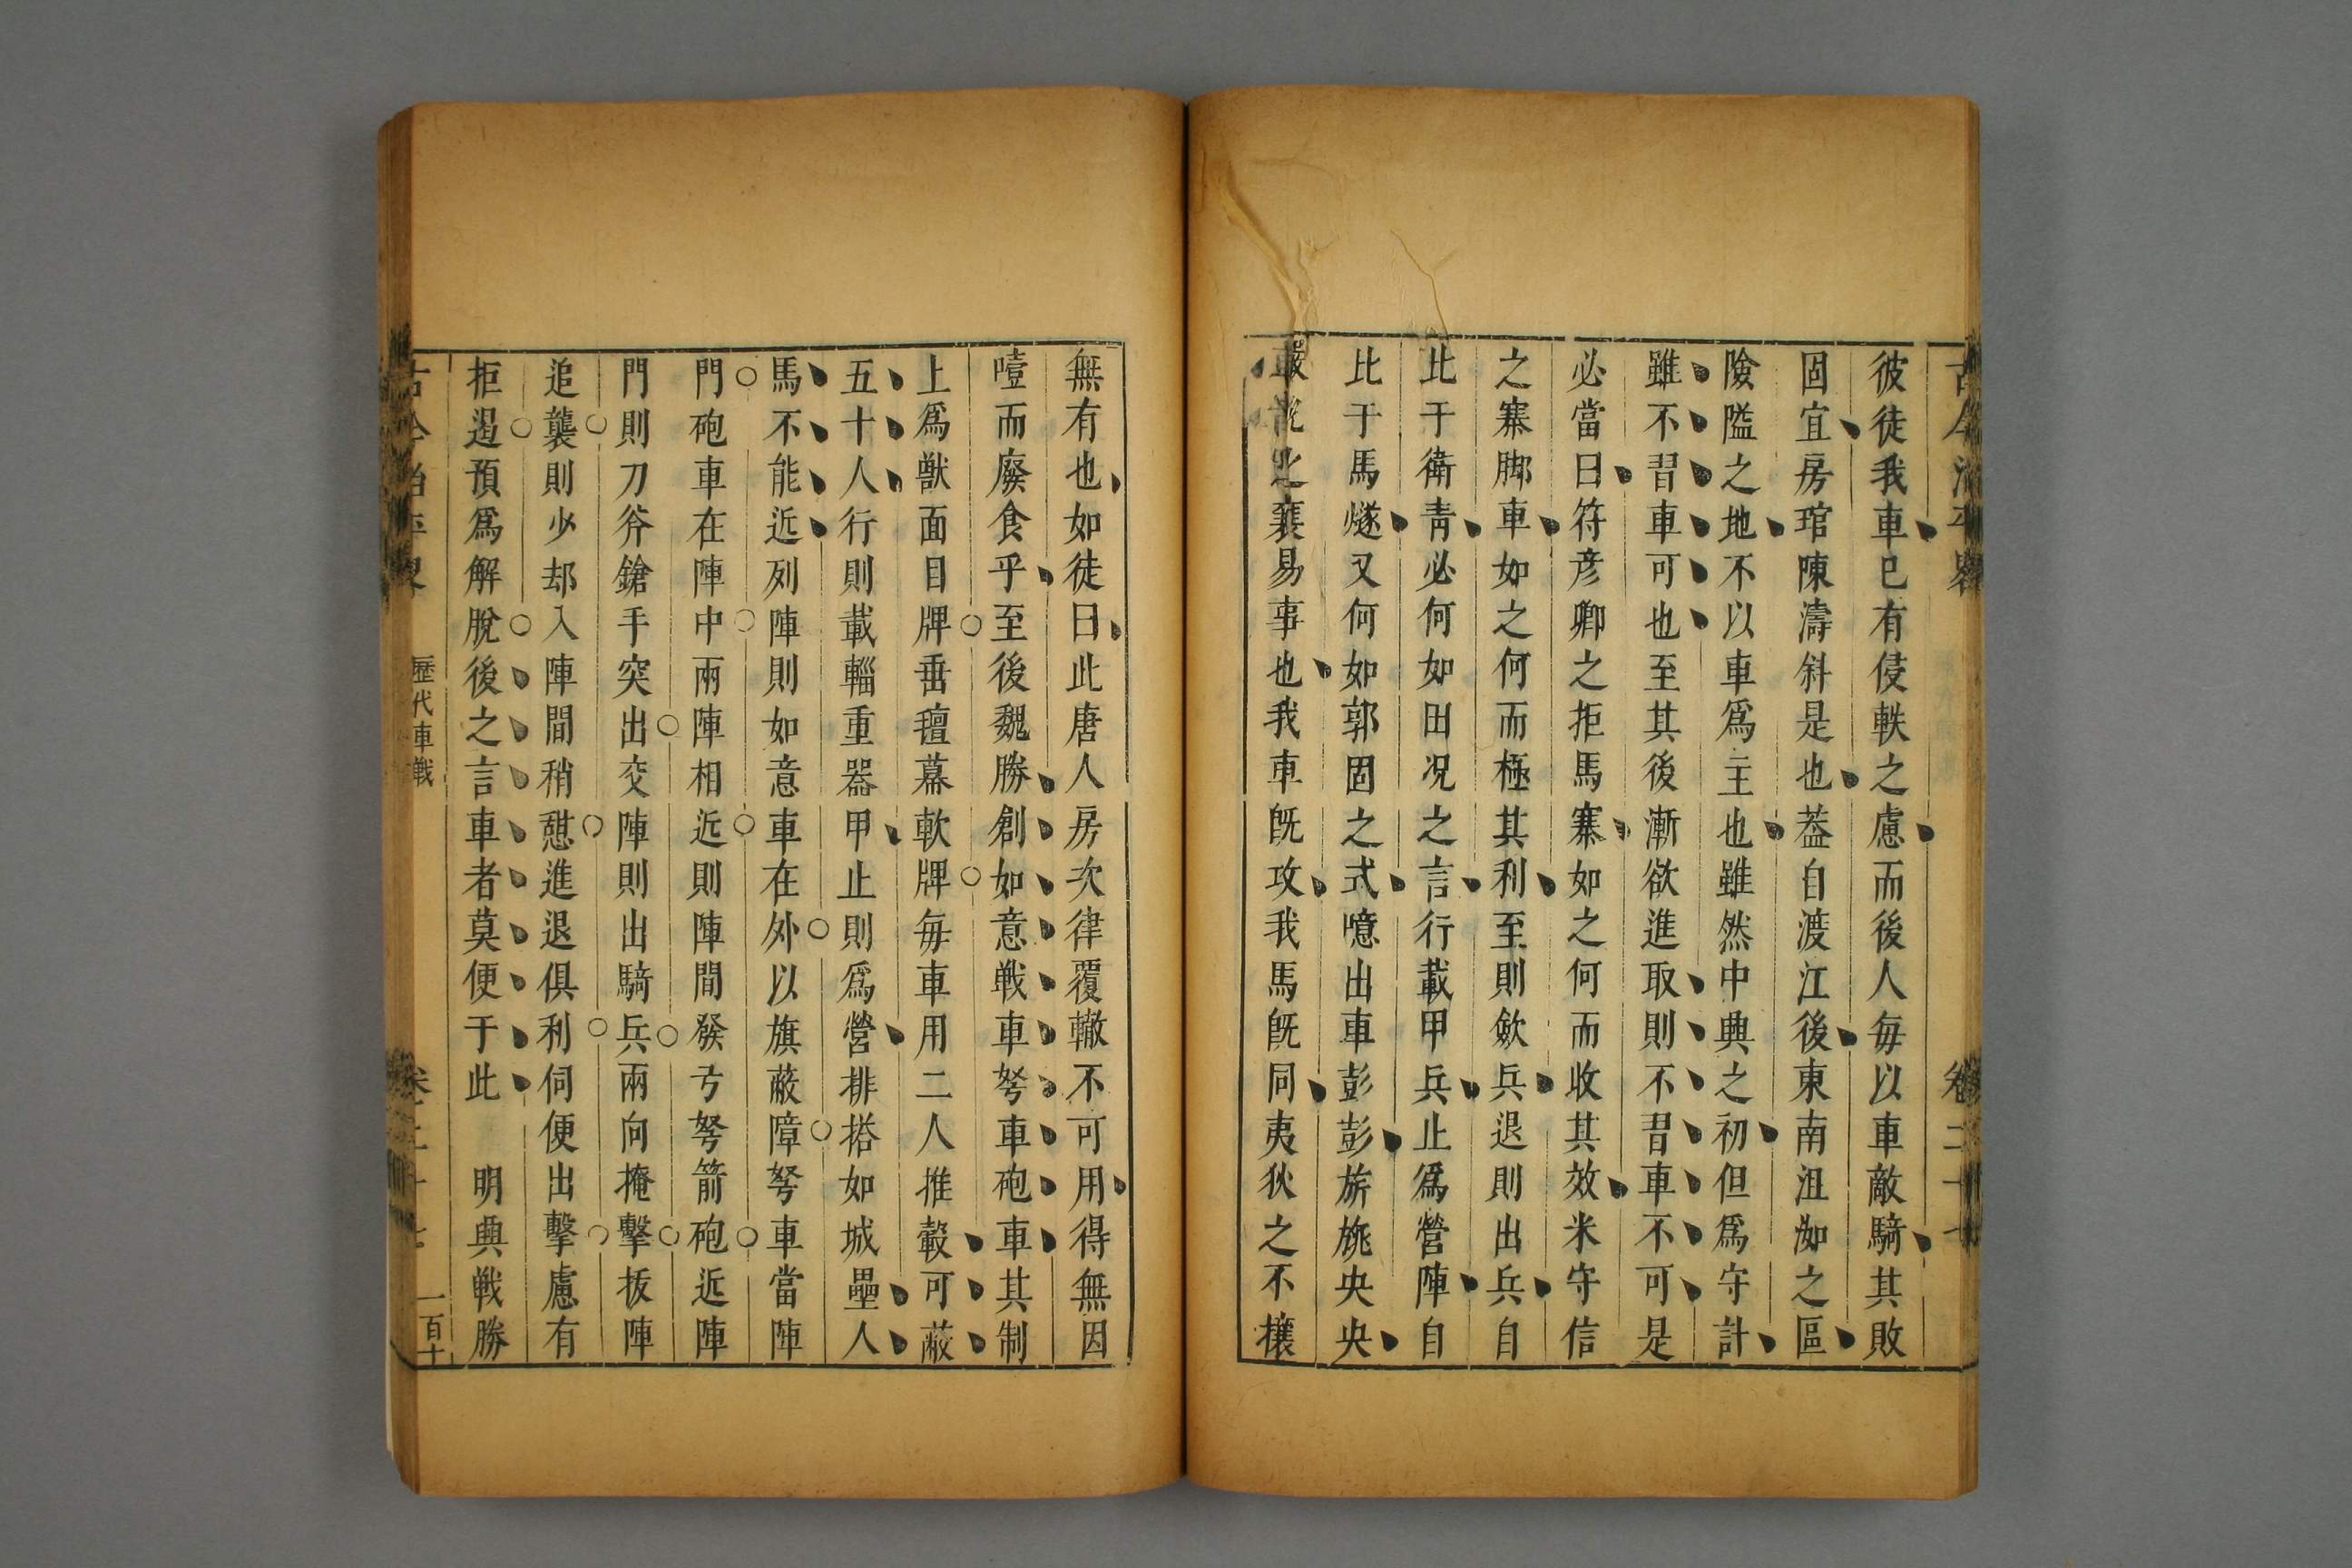 古今治平畧
卷二十七
彼徒我車已有侵軼之慮而後人每以車敵騎其敗
固宜房琯陳濤斜是也葢自渡江後東南沮洳之區
險隘之地不以車爲主也雖然中興之初但爲守計
雖不習車可也至其後漸欲進取則不習車不可是
必當曰符彦卿之拒馬寨如之何而收其效米守信
之寨脚車如之何而極其利至則斂兵退則出兵自
比于衛青必何如田况之言行載甲兵止爲營陣自
比于馬燧又何如郭固之式噫出車彭彭旂旐央央
玁狁之襄易事也我車旣攻我馬旣同夷狄之不攘
無有也如徒曰此唐人房次律覆轍不可用得無因
噎而廢食乎至後魏勝創如意戰車弩車砲車其制
上爲獸面目牌垂氊幕軟牌每車用二人推轂可蔽
五十人行則載輜重器甲止則爲營排搭如城壘人
馬不能近列陣則如意車在外以旗蔽障弩車當陣
門砲車在陣中兩陣相近則陣間發弓弩箭砲近陣
門則刀斧鎗手突出交陣則出騎兵兩向掩擊拔陣
追襲則少却入陣間稍憩進退俱利伺便出擊慮有
拒遏預爲解脫後之言車者莫便于此　明興戰勝
古今治平畧
歷代車戰
卷二十七
一百十